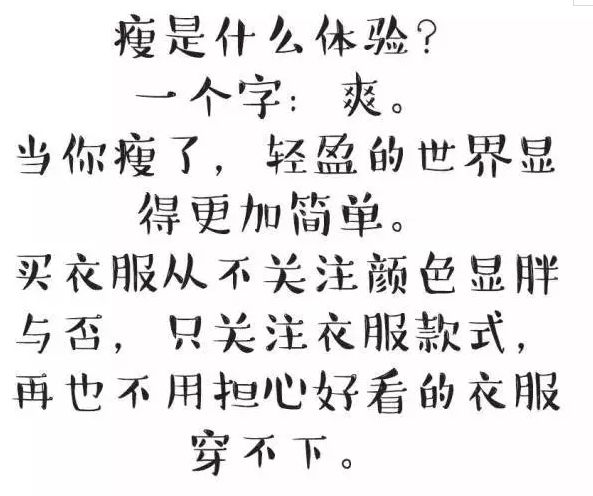 瘦是什么体验?
一个字：爽。
当你瘦了，轻盈的世界显
得更加简单。
买衣服从不关注颜色显胖
与否，只关注衣服款式，
再也不用担心好看的衣服
穿不下。